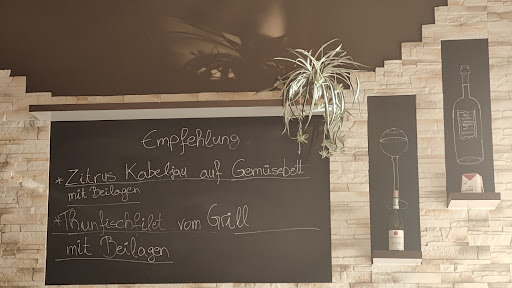 Empfehlung
* Zitrus Kabeljau auf Gemüsebett
mit Beilagen
* Thunfischfilet vom Grill
mit Beilagen